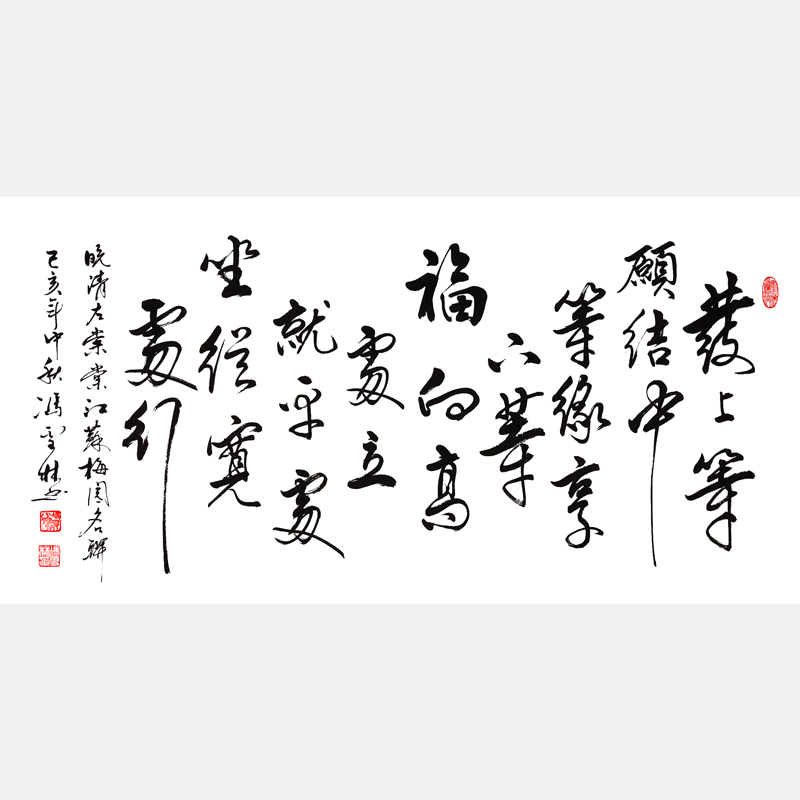 發上等
願結中
等緣享
下等
福向高
處立
就平處
坐從寬
處行
晚清左宗棠江蘇梅園名聯
己亥年中秋馮雪林書